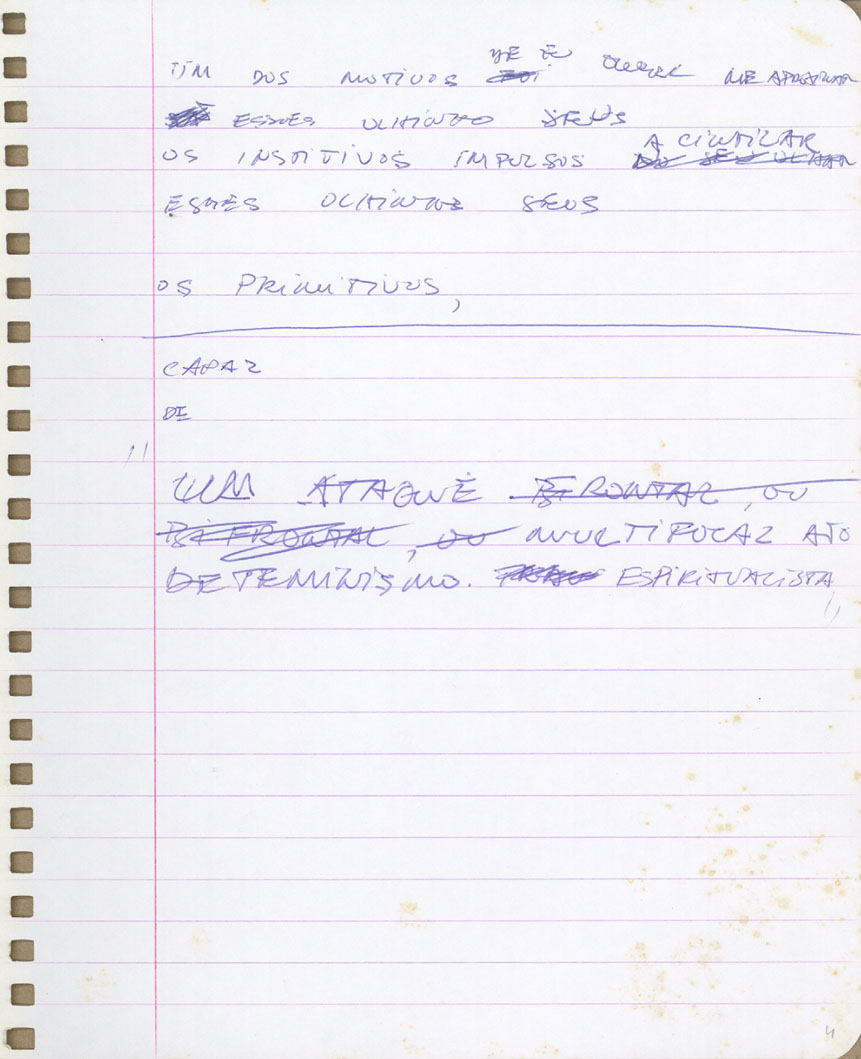 UM DOS MOTIVOS DE EU QUERER ME APROXIMAR
ESSES OLHINHOS SEUS
OS INSTITIVOS IMPULSOS A CINTILAR
ESSES OLHINHOS SEUS
OS PRIMITIVOS,
CAPAZ
DE
"
UM ATAQUE BIFRONTAL, OU
BIFRONTAL, OU MULTIFOCAL AO
DETEMINISMO. ESPIRITUALISTA
"
4